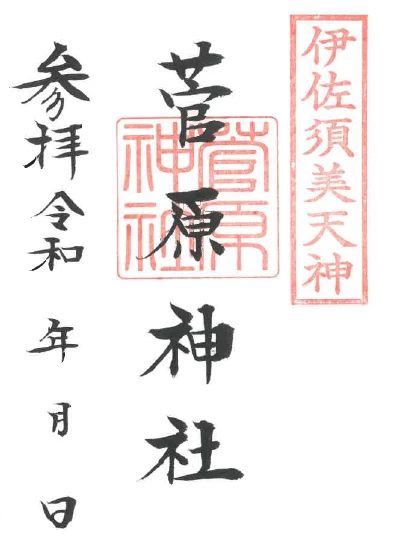 伊佐須美天神
菅原神社
菅原
神社
参拝令和 年 月 日